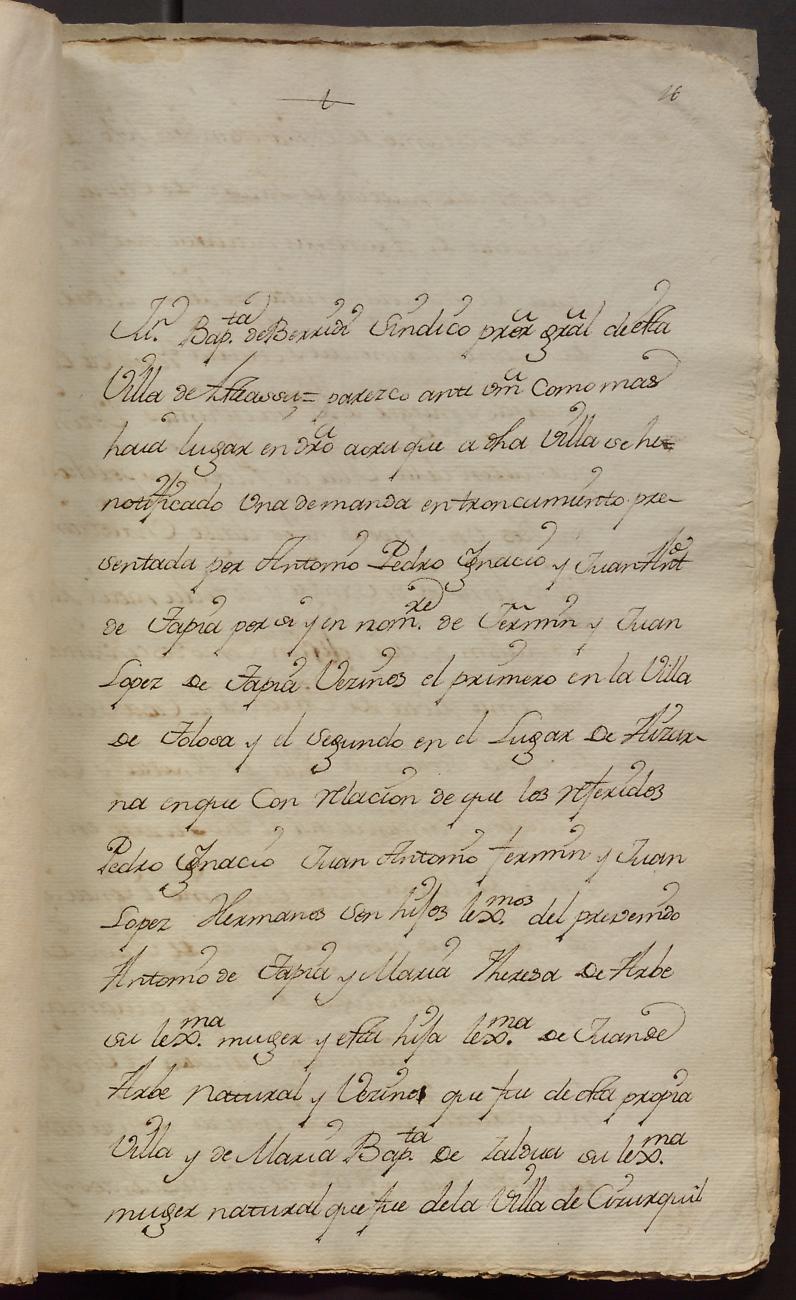 16
Jn. Bap.ta de Berridi Síndico prõr gral de esta
Villa de Atzassu= parezco ante vm Como mas
haia lugar en dro aora que a dha Villa se he
notificado Una demanda entroncamiento pre-
sentada por Antonio Pedro Ygnacio y Juan Anto
de Tapia por si y en nom.re de Fermin y Juan
Lopez de Tapia Vezinos el primero en la Villa
de Tolosa y el segundo en el Lugar de Hizur-
na en que Con relacion de que los referidos
Pedro Ygnacio Juan Antonio fermin y Juan
Lopez Hermanos son hijos lex.mos del prevenido
Antonio de Tapia y Maria Theresa de Arbe
su lex.ma muger y esta hija lex.ma de Juan de
Arbe natural y Vezino que fue de esta propia
Villa y de Maria Bap.ta de Zaldua su lex.ma
muger natural que fue dela Villa de Cizurquil